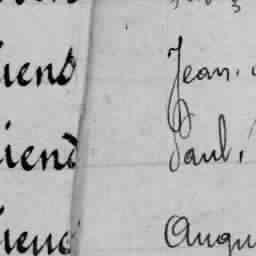 iens Jean,
iens Paul,
iens Augu